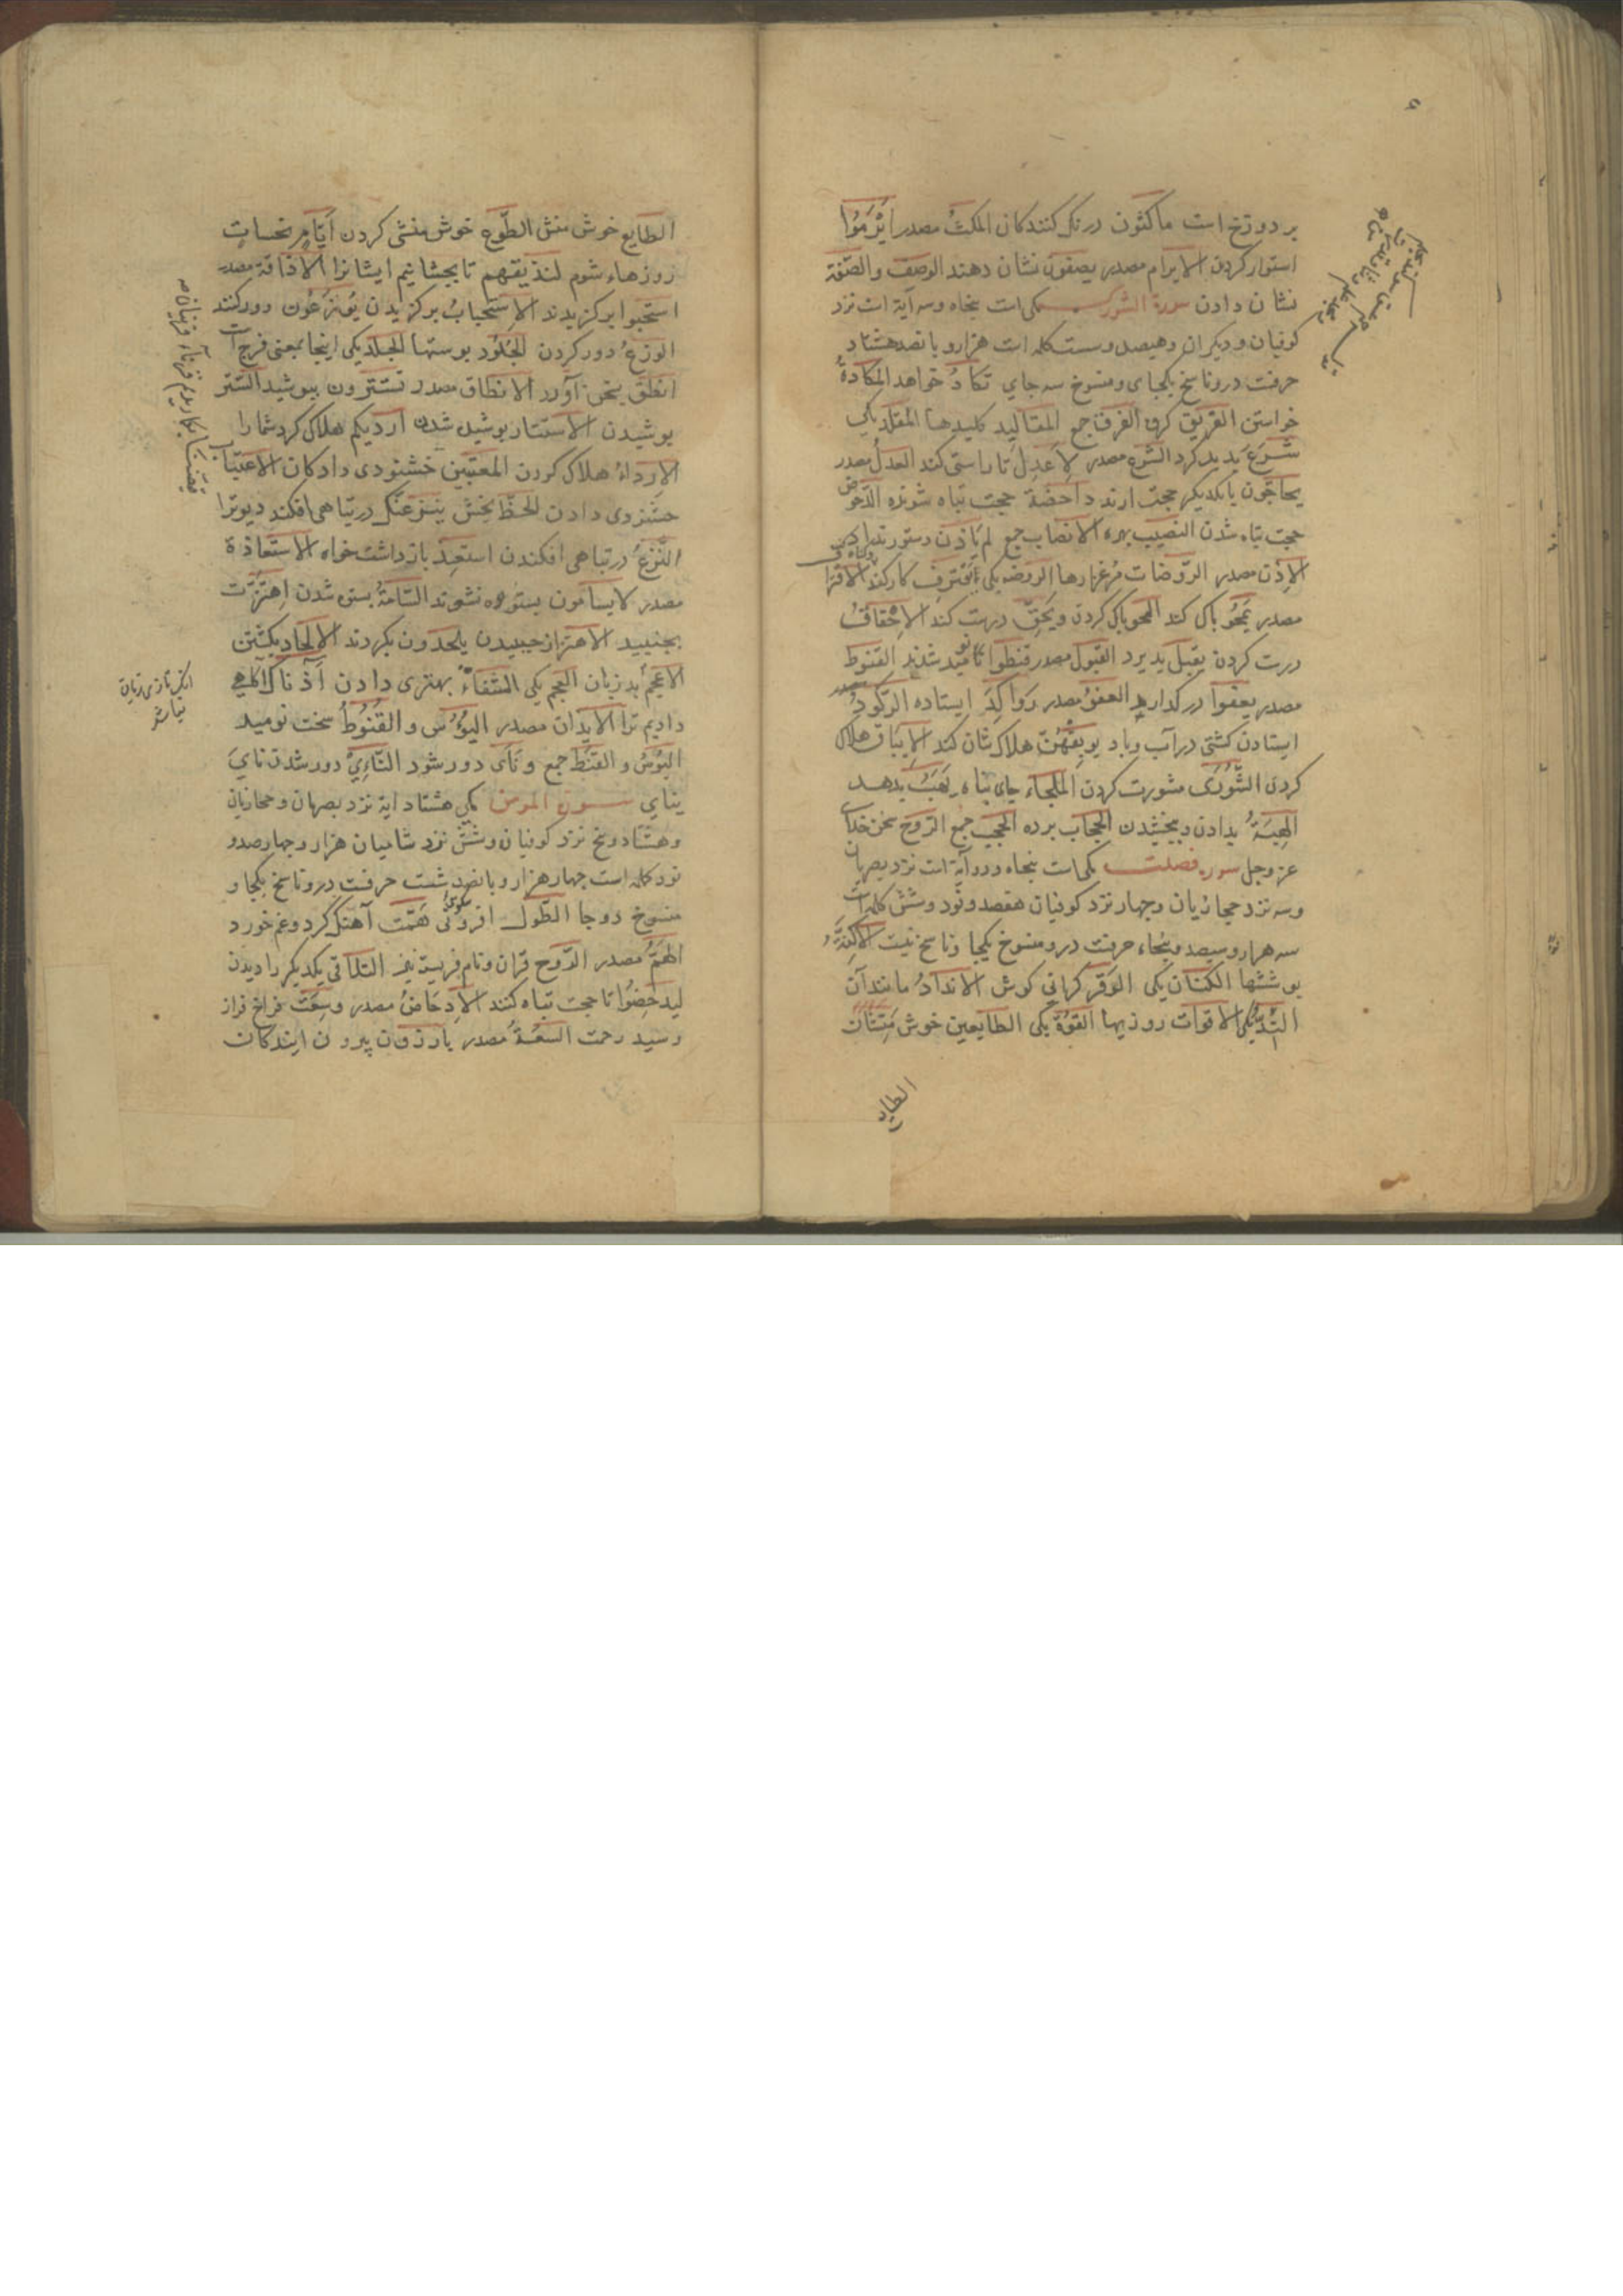 بر دوزخ است ماكثون درنك كنندكان الملك مصدر ابرموا
استوار كردن الابرام مصدر يصفون نشان دهند الوصف والصفة
نشان دادن سورة الشورى مكى است پنجاه وسه آية است نزد
كوفيان وديكران وهيصد وست كلمه است هزار و بانصد هشتاد
حرفت درو ناسخ يكجاى و منسوخ سه جاي تكاد خواهد المكادة
خواستن الفريق كروه الفرق جمع المقاليد كليدها المقلد يكى
شرع پديد كرد الشرع مصدر لاعدل تا راستى كند العدل مصدر
يحاجون با يكديكر حجت ارند داحضة حجت تباه شونده الدحوض
حجت تباه شدن النصيب بهره الانصباء جمع لم ياذن دستورى نداد
الاذن مصدر الروضات مرغزارها الروضه يكى يقترف كار كند الاقتراف
مصدر يمحو باك كند المحو باك كردن ويحق درست كند الاحقاق
درست كردن يقبل پذيرد القبول مصدر قنطوا نوميد شدند القنوط
مصدر يعفوا در كذارد العفو مصدر رواكد ايستاده الركود
ايستادن كشتى در آب وباد يوبقهن هلاك شان كند الايباق هلاك
كردن الشورى مشورت كردن الملجاء جاى پناه يهب بدهد
الهبة بدادن و ببخشيدن الحجاب برده الحجب جمع الروح سخن خداى
عز وجل سوره فصلت مكى است پنجاه ودو آية است نزد بصريان
وسه نزد حجازيان وجهار نزد كوفيان هفصد ونود وشش كلمه است
سه هزار وسيصد وپنجاه حرفت درو منسوخ يكجا وناسخ نيست الاكنة
پوششها الكنان يكى الوقر كرانى كوش الانداد مانندآن
الند يكى الاقوات روزيها القوة يكى الطايعين خوش منشان
الطايع
الطايع خوش منش الطوع خوش منشى كردن ايام نحسات
روزهاء شوم لنذيقهم تا بچشانيم ايشانرا الاذاقة مصدر
استحبوا بركزيدند الاستحباب بركزيدن يوزعون دور كنند
الوزع دور كردن الجلود پوستها الجلد يكى اينجا بمعنى فرج است
انطق بسخن آورد الانطاق مصدر تستترون بپوشيد الستر
پوشيدن الاستتار پوشيده شدن ارديكم هلاك كرد شمارا
الارداء هلاك كردن المعتبين خشنودى دادكان الاعتاب
خشنودى دادن الحظ بخش ينزغنك در تباهى افكند ديو ترا
النزغ در تباهى افكندن استعذ بازداشت خواه الاستعاذة
مصدر لا يسامون بستوه نشوند السامة بستوه شدن اهتزت
بجنبيد الاهتزاز جنبيدن يلحدون بكردند الالحاد بكشتن
الاعجم بد زبان العجم يكى الشفاء بهترى دادن آذناك
داديم ترا الايذان مصدر اليؤس والقنوط سخت نوميد
اليؤس والقنط جمع ونأى دور شود النائ دور شدن ناى
يناى سورة المومن مكى هشتاد اية نزد بصريان وحجازيان
وهشتاد وپنج نزد كوفيان وشش نزد شاميان هزار وجهار صد و
نود كلمه است جهار هزار و بانصد شست حرفت درو ناسخ يكجا و
منسوخ دو جا الطول افزونى همت آهنك كرد وغم خورد
الهم مصدر الروح قران ونام فريسته نيز التلاقى يكديكر را ديدن
ليدحضوا تا حجت تباه كنند الادحاض مصدر وسعت فراخ فراز
رسيد رحمت السعة مصدر بارزون بيرون ايندكان
قيضنا بكارديم قرناء قرينان
انك تازى زبان نباشد